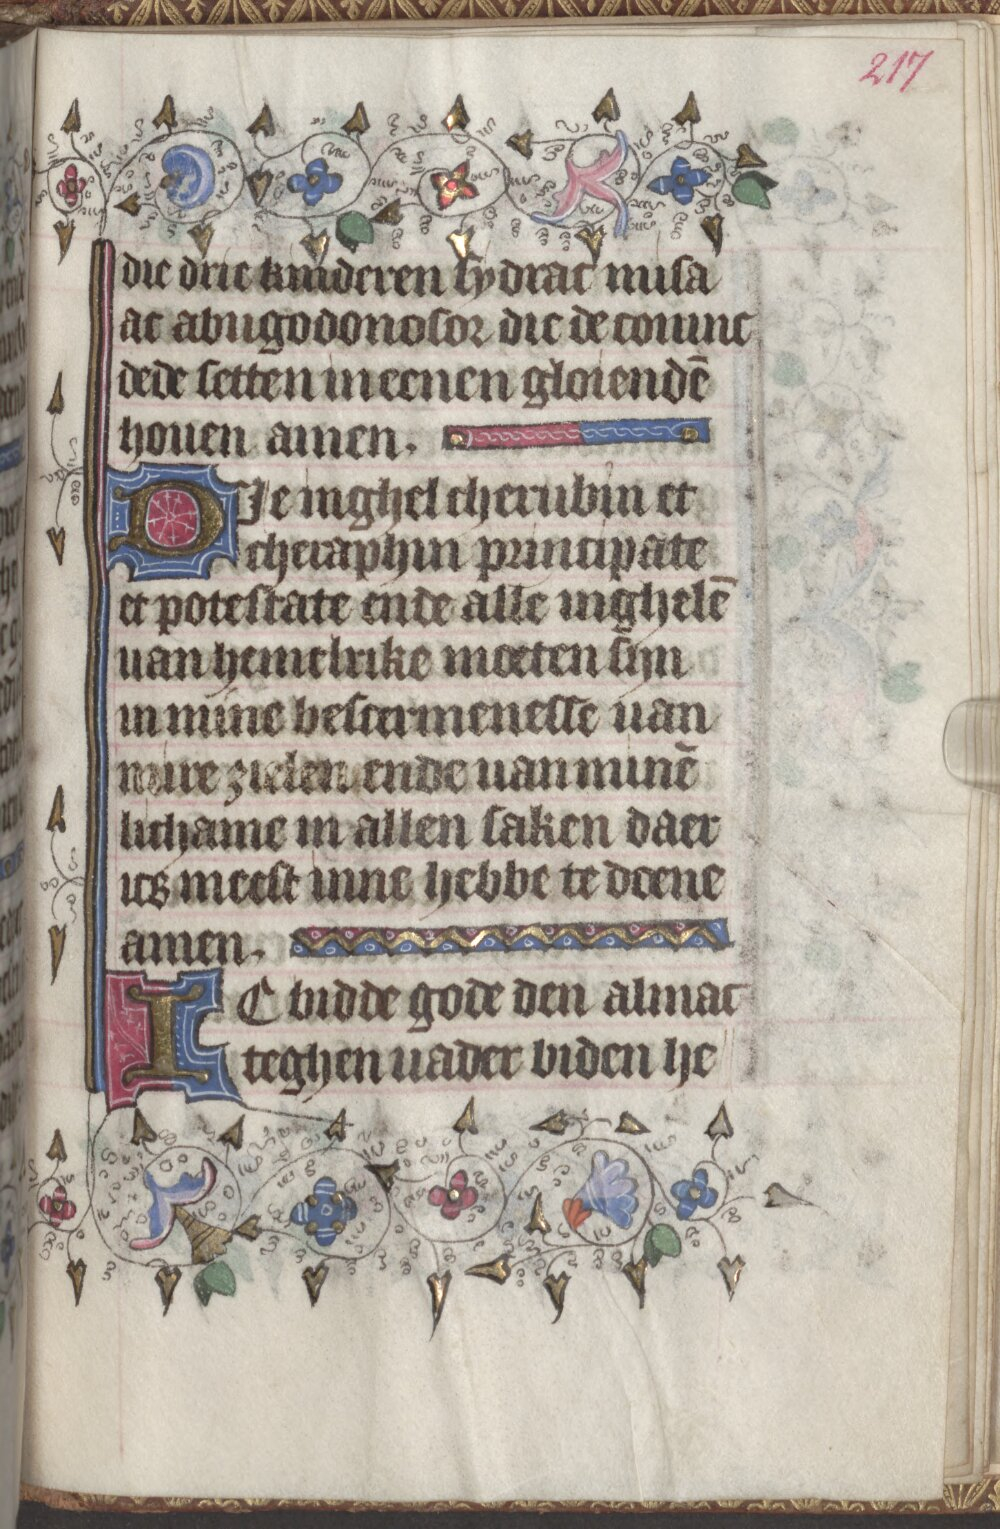 217
die drie kinderen sydrac misa
ac abugodonosor die de coninc
dede setten in eenen gloiendē
houen amen.
Die inghel cherubin et
cheraphin principate
et potestate ende alle inghelē
uan hemelrike moeten sijn
in mine bescermenesse uan
mire zielen ende uan minē
lichame in allen saken daer
ics meest inne hebbe te doene
amen.
IC bidde gode den almac
teghen uader biden he